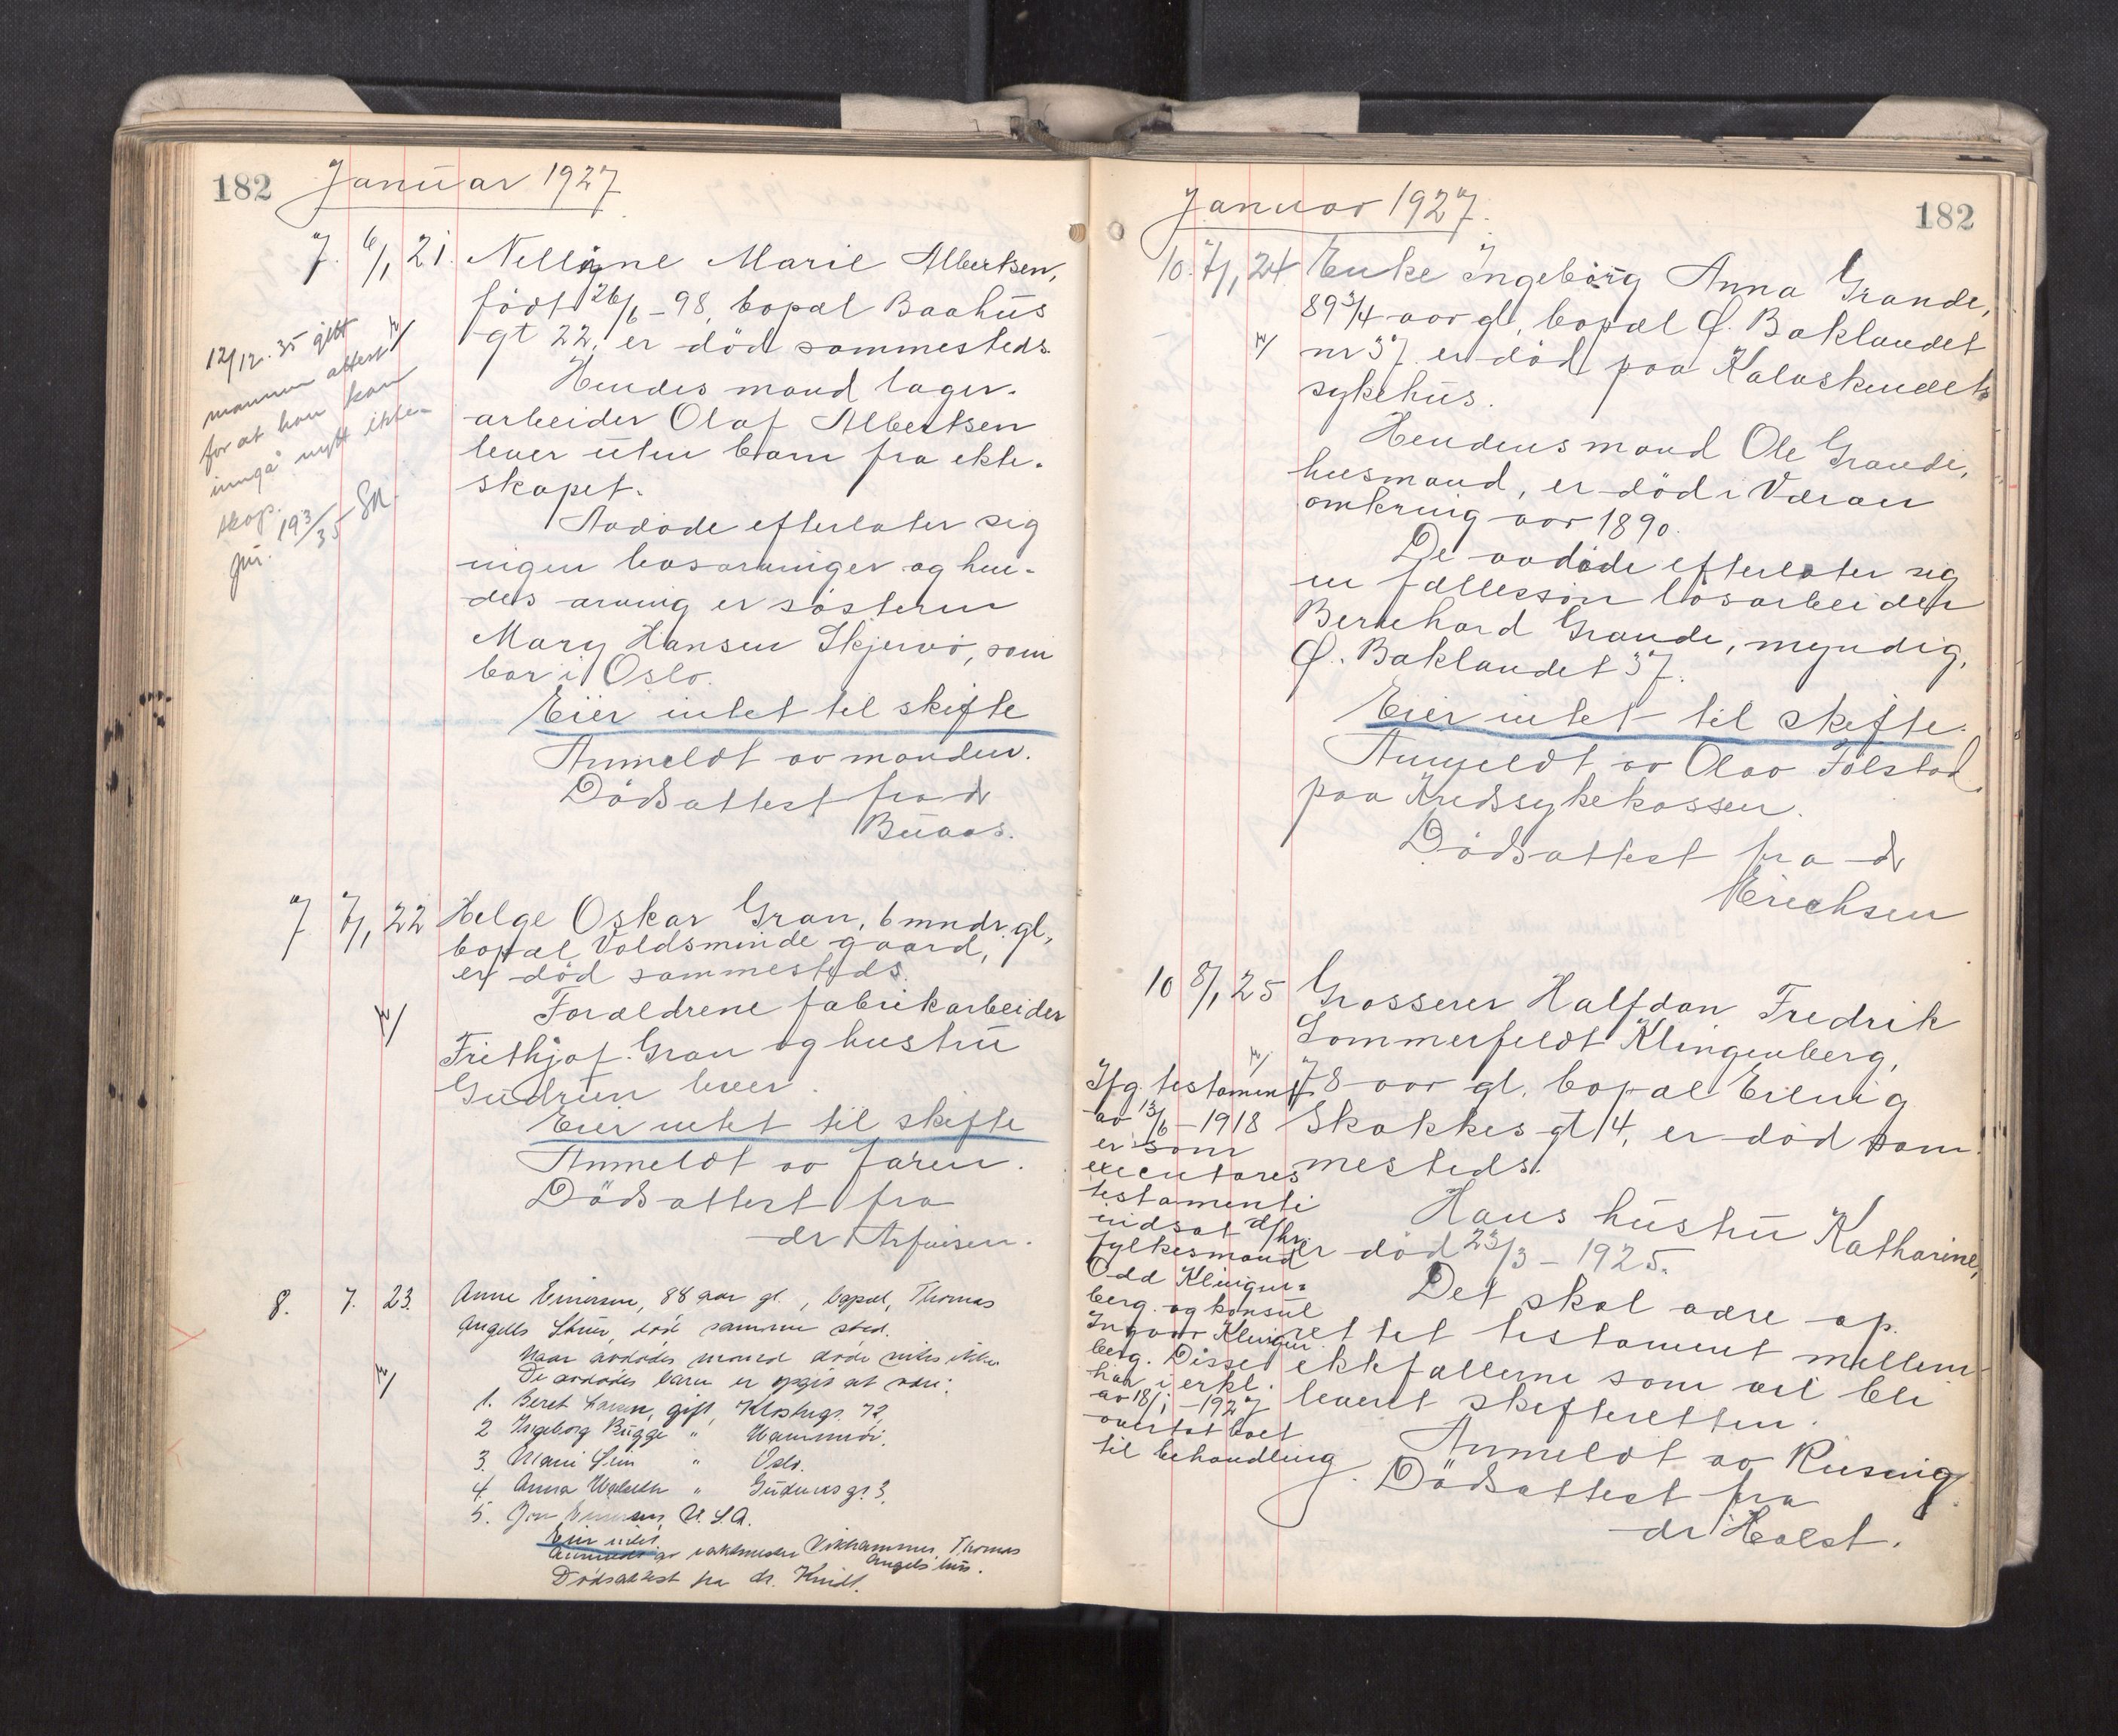 182 Januar 1927
7. 6/1, 21. Nelline Marie Albertsen,
født 26/6 – 98, bopæl Baahus
gt 22, er död sammesteds.
Hendes mand lager-
arbeider Olaf Albertsen
lever uten barn fra ekte-
skapet.
Avdöde efterlater sig
ingen livsarvinger og hen-
des arving er söstern
Mary Hansen Skjervö, som
bor i Oslo.
Eier intet til skifte
Anmeldt av manden.
Dödsattest fra dr
Buaas.
12/12. 35 gitt
mannen attest
for at han kan
inngå nytt ekte-
skap.
jnr. 193/35
7 7/1, 22 Helge Oskar Gran, 6 mndr. gl.,
bopæl Voldsminde gaard,
er död sammesteds.
Foræeldrene fabrikarbeider
Frithjof Gran og hustru
Gudrun lever.
Eier intet til skifte
Anmeldt av faren.
Dödsattest fra
dr Arfinsen.
8. 7. 23. Anne Einersen, 88 aar gl., bopæl, Thomas
Angells Stuer, död samme sted.
Naar avdödes mand döde vites ikke
De avdödes barn er opgit at være:
1. Beret Larsen, gift, Klostergt. 72,
2 Ingeborg Bugge "
3. Marie "  Oslo.
4. Anna " Gudrunsgt. 3,
5. U.S.A.
Eier intet.
Anmeldt av vaktmester Vikhammer, Thomas
Angells hus.
Dödsattest fra dr.
Januar 1927. 182
10. 7/1, 24 Enke Ingeborg Anna Grande,
89 3/4 aar gl, bopæl Ø. Baklandet
nr 37 er död paa Kalvskindets
sykehus.
Hendens mand Ole Grande,
husmand, er död i Væran
omkring aar 1890.
De avdöde efterlater sig
en fællessön lösarbeider
Bernhard Grande, myndig,
Ø. Baklandet 37.
Eier intet til skifte.
Anmeldt av Olav Folstad
paa Kredssykekassen.
Dödsattest fra dr
Erichsen
10 8/1, 25 Grosserer Halfdan Fredrik
Sommerfeldt Klingenberg,
78 aar gl. bopæl Eilivig
Skakkes gt 14, er död sam-
mesteds.
Hans hustru Katharine,
er död 23/3 – 1925.
Det skal være op-
rettet testament mellem
ektefællerne som vil bli
levert skifteretten.
Anmeldt av Rusinig.
Dödsattest fra
dr Holst.
Ifg. testament
av 13/6 – 1918
er som
executores
testamenti
indsat d/hrr
fylkesmand
Odd Klingen-
berg. og konsul
Ingvar Klingen-
berg. Disse
har i erkl.
av 18/1 – 1927
overtat boet
til behandling.